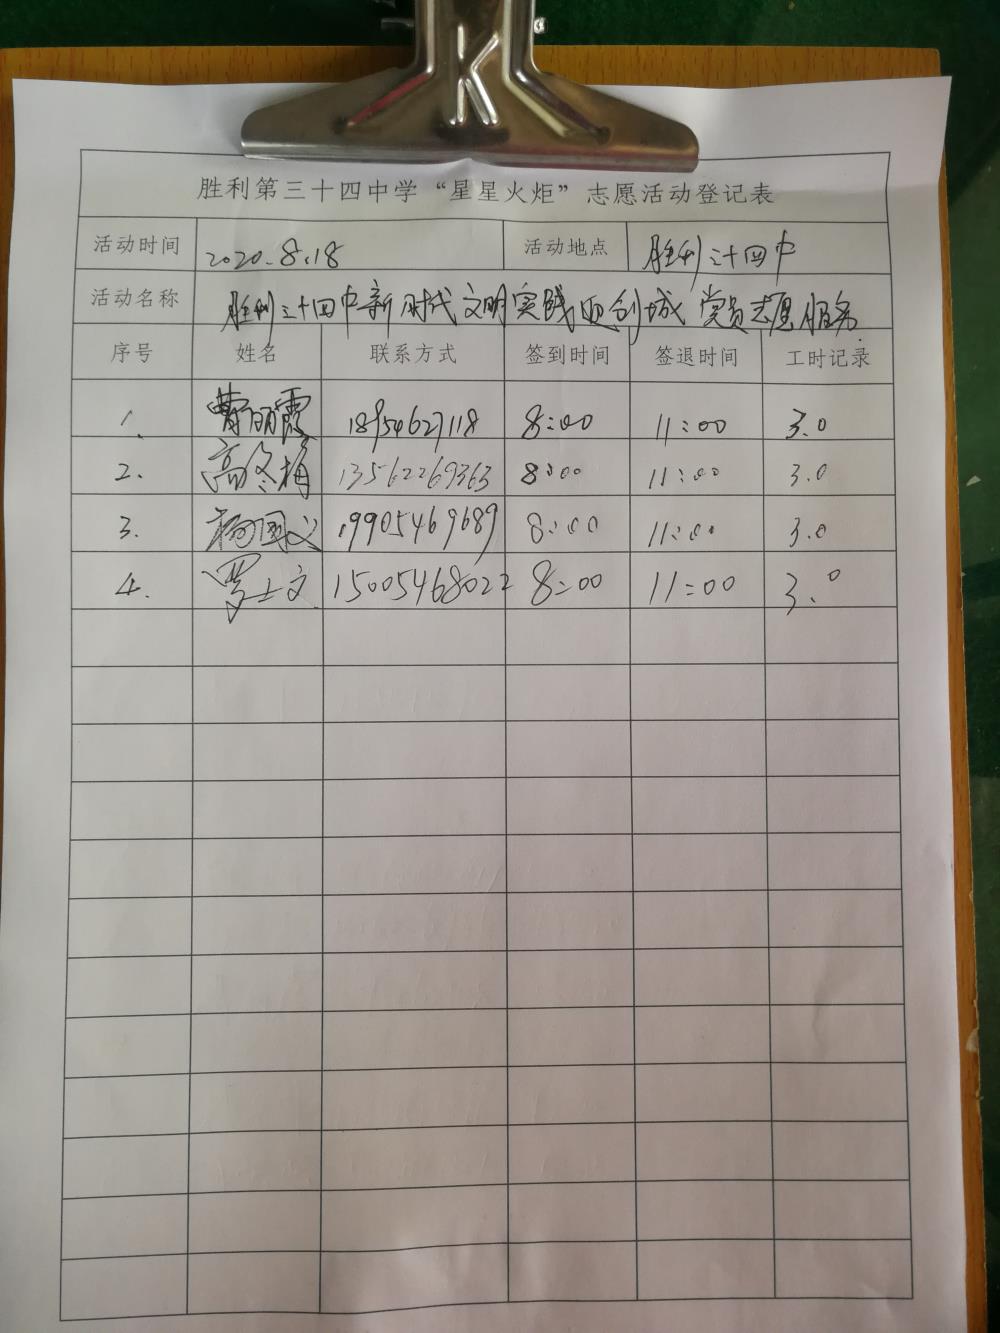 K
胜利第三十四中学“星星火炬”志愿活动登记表
活动时间 2020.8.18 活动地点 胜利三十四中
活动名称 胜利三十四中新时代文明实践迎创城党员志愿服务
序号 姓名 联系方式 签到时间 签退时间 工时记录
1. 曹丽霞 18954627118 8:00 11:00 3.0
2. 高冬梅 13562269363 8:00 11:00 3.0
3. 杨国义 19905469689 8:00 11:00 3.0
4. 罗士文 15005468022 8:00 11:00 3.0